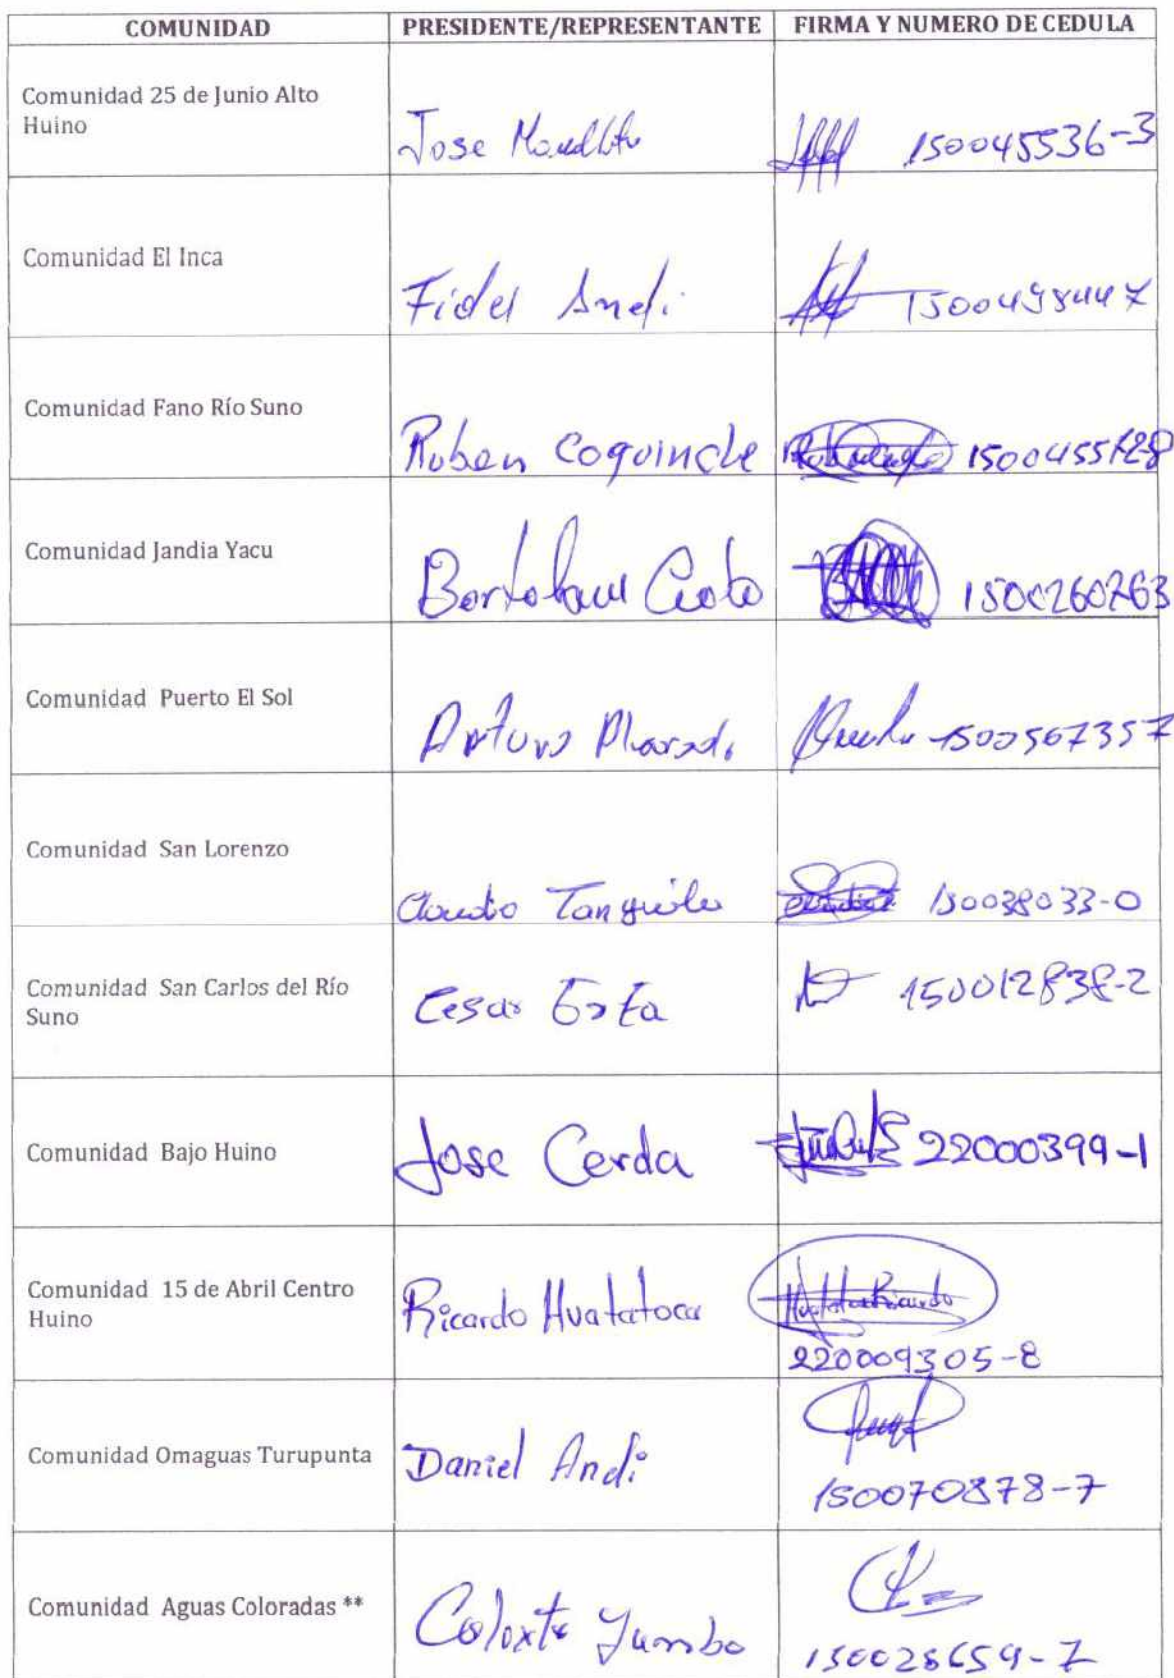 COMUNIDAD PRESIDENTE/REPRESENTANTE FIRMA Y NUMERO DE CEDULA
Comunidad 25 de Junio Alto
Huino
Jose 150045536-3
Comunidad El Inca
Fidel Andi. 1500498447
Comunidad Fano Río Suno
Ruben Coquinche
Comunidad Jandia Yacu
1500260263
Comunidad Puerto El Sol
Arturo 1500567357
Comunidad San Lorenzo
Tanguila 150038033-0
Comunidad San Carlos del Río
Suno
Cesar 150012838-2
Comunidad Bajo Huino
Jose Cerda 22000399-1
Comunidad 15 de Abril Centro
Huino
Ricardo Huatatoca
220009305-8
Comunidad Omaguas Turupunta
Daniel Andi
150070878-7
Comunidad Aguas Coloradas **
Yumbo